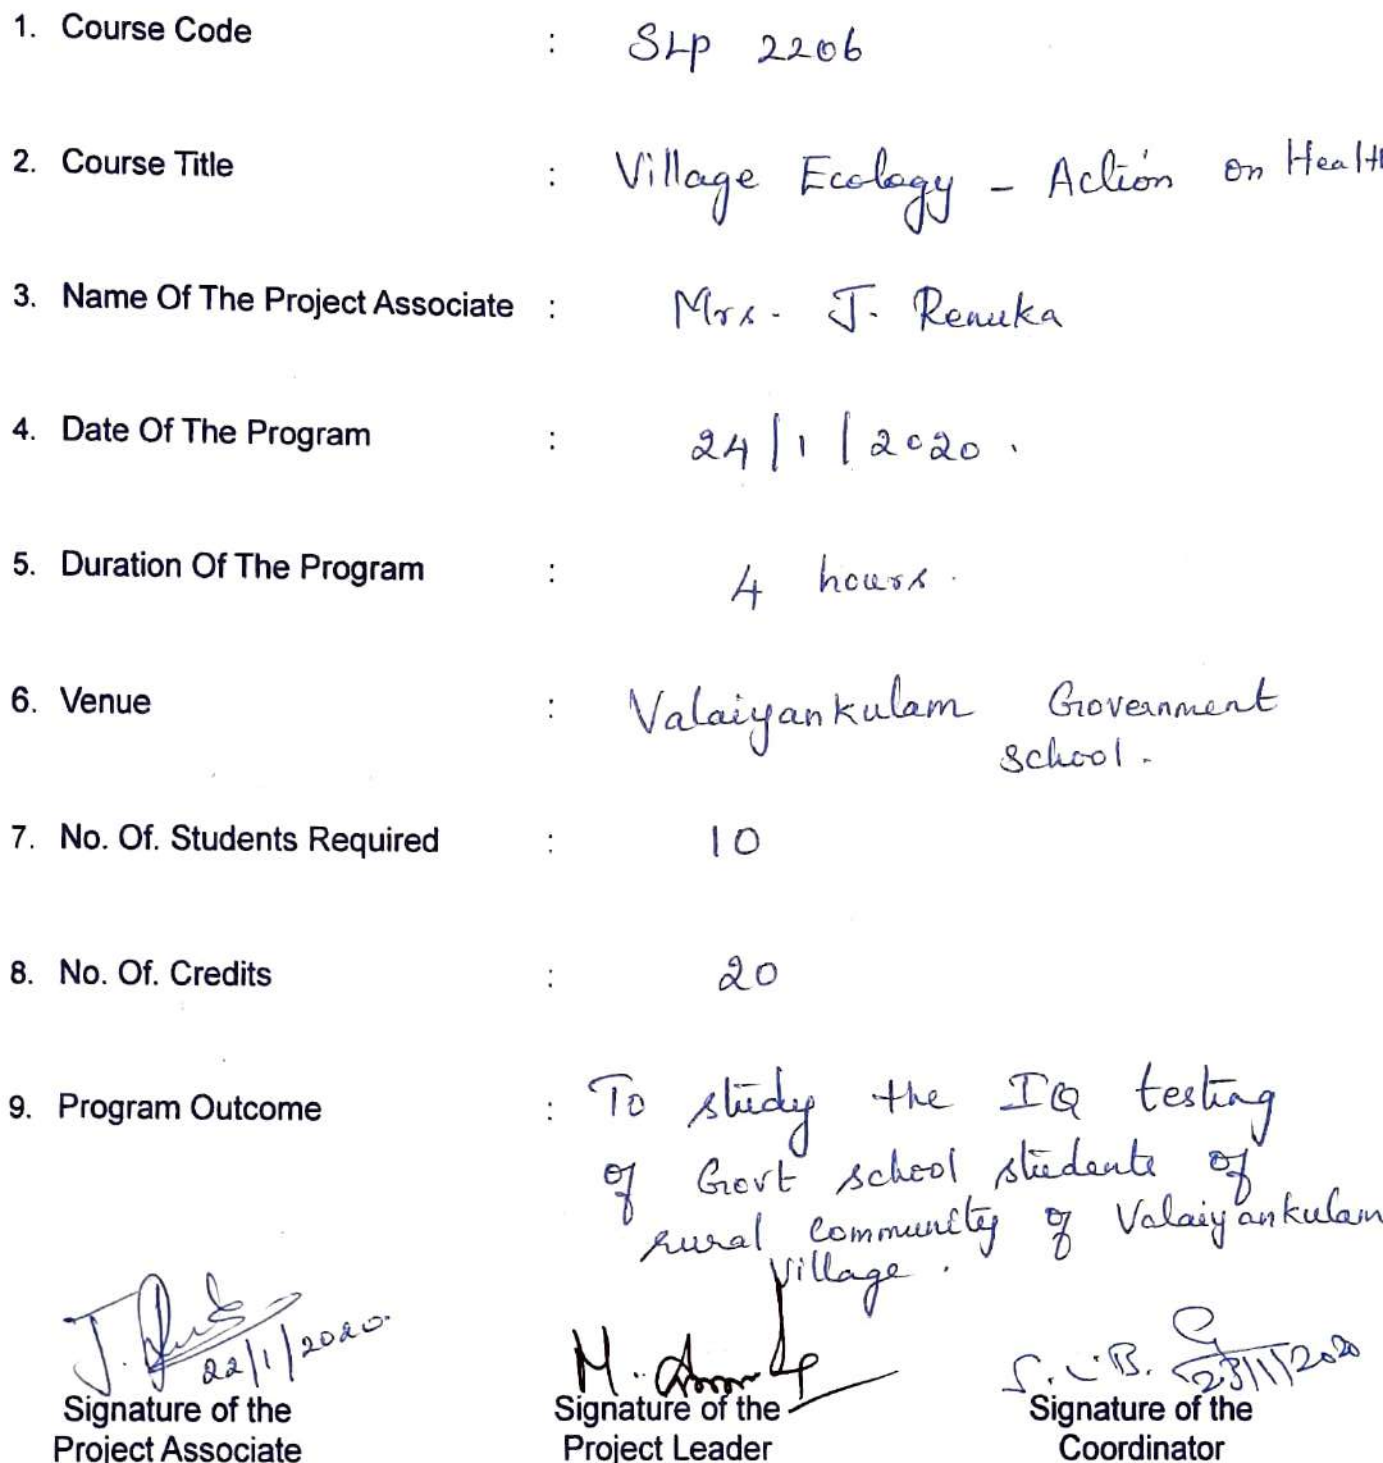 1. Course Code : SLP 2206
2. Course Title : Village Ecology - Action on Healt
3. Name Of The Project Associate : Mrs. J. Renuka
4. Date Of The Program : 24/1/2020.
5. Duration Of The Program : 4 hours.
6. Venue : Valaiyankulam Government
school.
7. No. Of. Students Required : 10
8. No. Of. Credits : 20
9. Program Outcome : To study the IQ testing
of Govt school students of
rural community of Valaiyankulam
Village.
J.
22/1/2020.
M.
S.
23/1/2020
Signature of the Project Associate
Signature of the Project Leader
Signature of the Coordinator